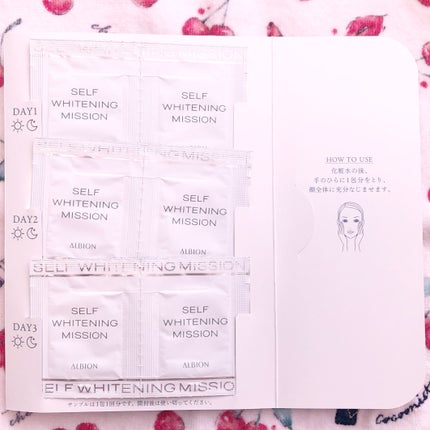 SELF WHITENING MISSION
DAY1
SELF
WHITENING
MISSION
SELF
WHITENING
MISSION
SELF WHITENING MISSION
DAY2
SELF
WHITENING
MISSION
ALBION
SELF
WHITENING
MISSION
ALBION
SELF WHITENING MISSION
DAY3
SELF
WHITENING
MISSION
ALBION
SELF
WHITENING
MISSION
ALBION
ELF WHITENING MISSIO
サンプルは1包1回分です。開封後は使い切ってください。
HOW TO USE
化粧水の後、
手のひらに1包分をとり、
顔全体に充分なじませます。